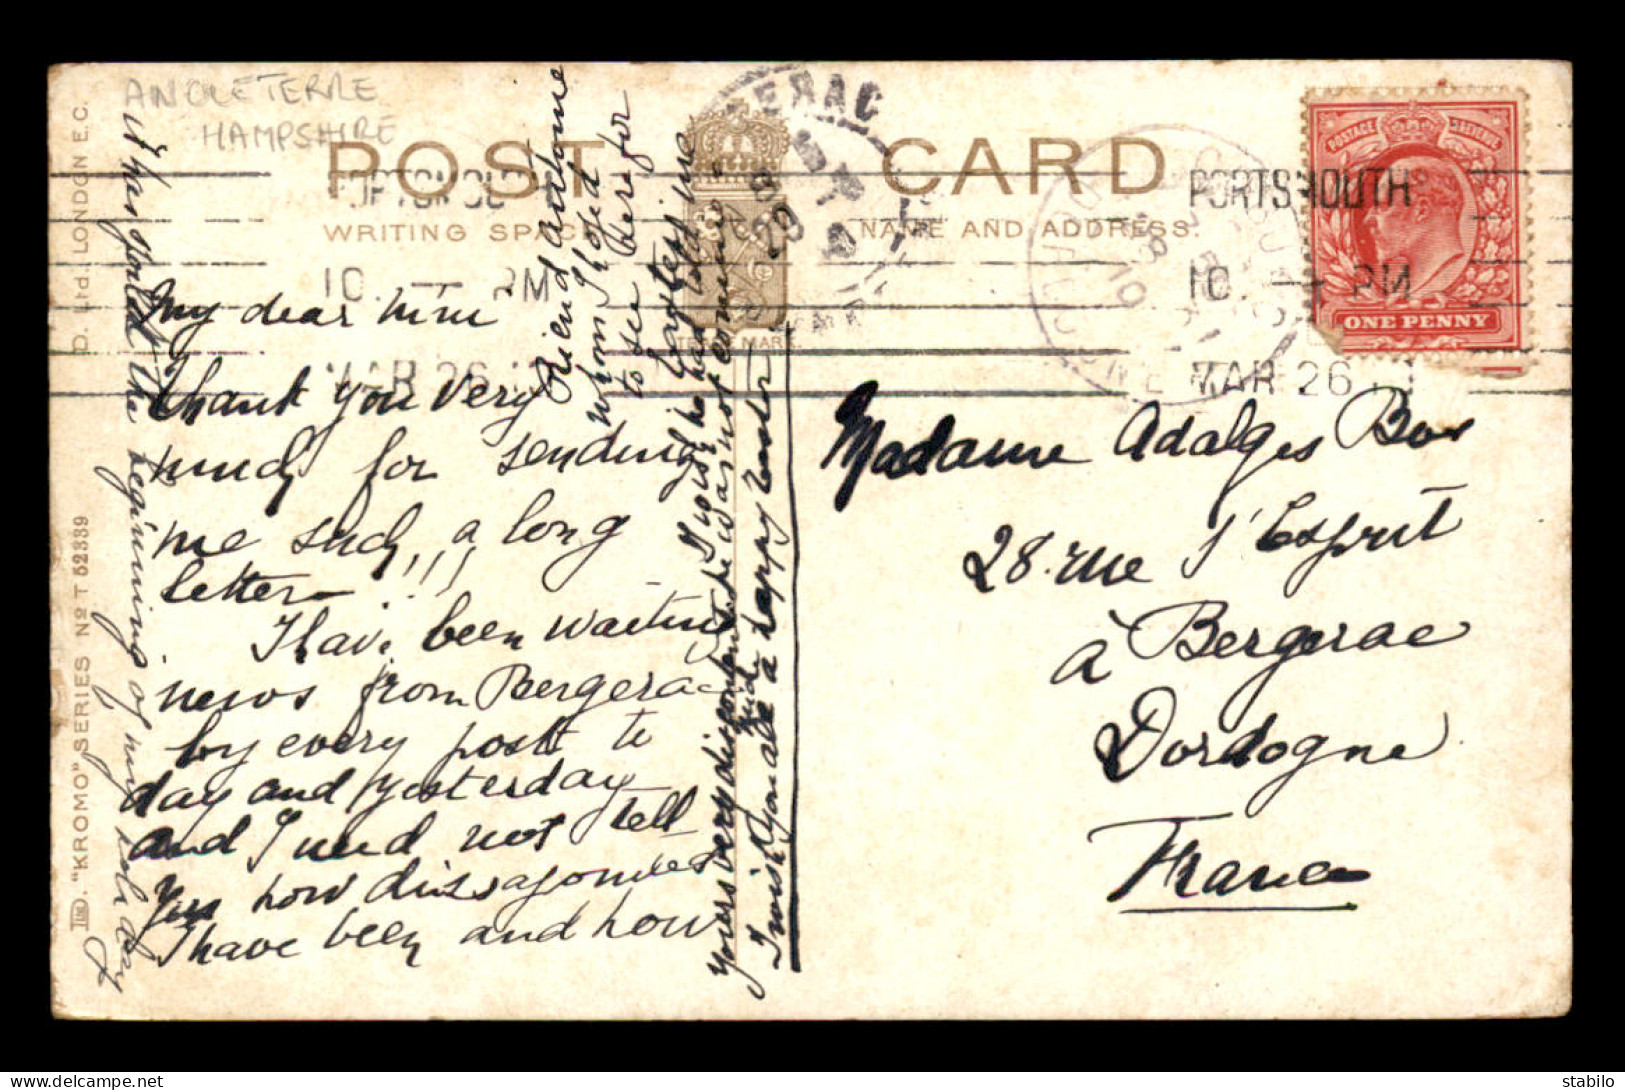 ANGLETERRE
HAMPSHIRE
POST CARD
WRITING SPACE
NAME AND ADDRESS.
TRADE MARK.
PORTSMOUTH
10 — PM
MAR 26
PORTSMOUTH
10 — PM
MAR 26
ERAC
POSTAGE & REVENUE
ONE PENNY
D. Ltd. LONDON E.C.
"KROMO" SERIES No T 52339
My dear Mimi
Thank you very
much for sending
me such, a long
letter !!!
I have been waiting
news from Bergerac
by every post to
day and yesterday
and I need not tell
you how dissapointed
I have been and how
it has spoiled the beginning of my holiday
friend
whom I hoped
to see here for
Easter
I wish you all a happy Easter
Madame Adalges Bos
28 rue St Esprit
à Bergerac
Dordogne
France
stabilo